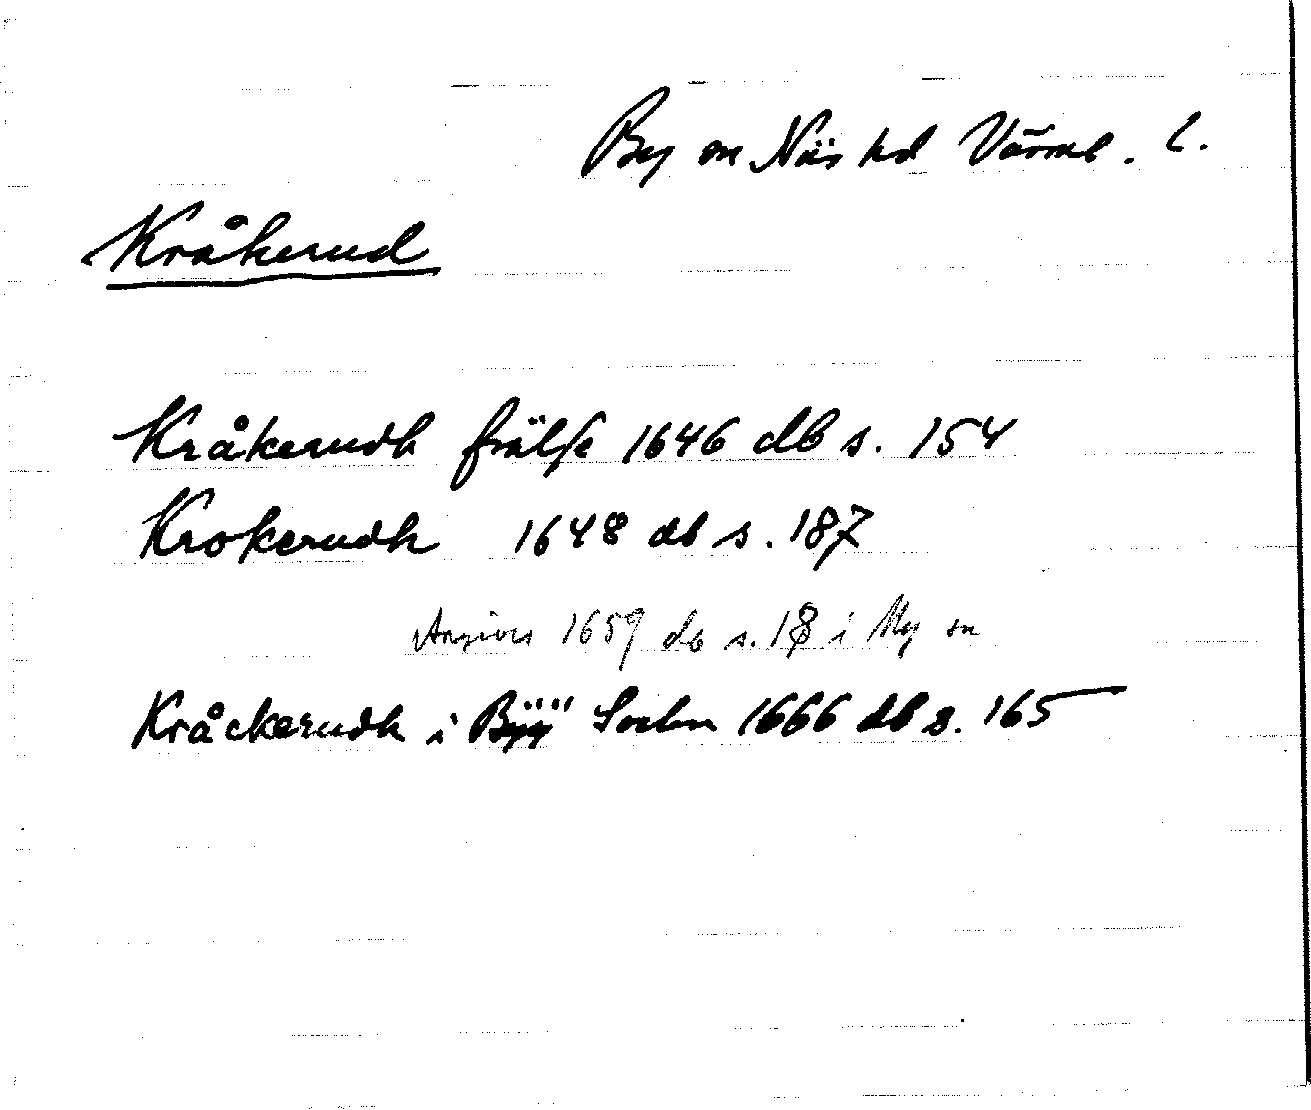 By sn Näs hd Värml. l.
Kråkerud
Kråkerudh frälse 1646 db s. 154
Krokerudh 1648 db s. 187
Angives 1659 db s. 18 i Ny sn
Kråckerudh i Bÿÿ Sochn 1666 db s. 165